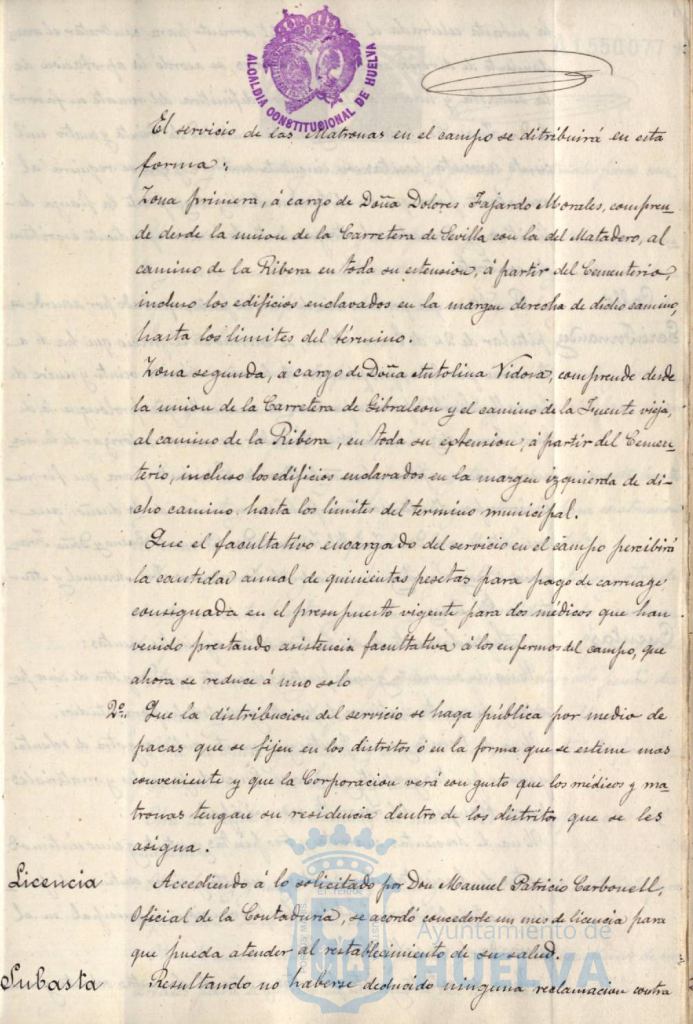 ALCALDIA CONSTITUCIONAL DE HUELVA
El servicio de las Matronas en el campo se ditribuirá en esta
forma:
Zona primera, á cargo de Doña Dolores Fajardo Morales, compren-
de desde la union de la Carretera de Sevilla con la del Matadero, al
camino de la Ribera en toda su estension, á partir del Cementerio,
incluso los edificios enclavados en la margen derecha de dicho camino,
hasta los limites del término.
Zona segunda, á cargo de Doña Antolina Vidosa, comprende desde
la union de la Carretera de Gibraleon y el camino de la Fuente vieja,
al camino de la Ribera, en toda su extension, á partir del Cemen-
terio, incluso los edificios enclavados en la margen izquierda de di-
cho camino, hasta los limites del termino municipal.
Que el facultativo encargado del servicio en el campo percibirá
la cantidad anual de quinientas pesetas para pago de carruage
consignada en el presupuesto vigente para dos médicos que han
venido prestando asistencia facultativa á los enfermos del campo, que
ahora se reduce á uno solo
2º. Que la distribucion del servicio se haga pública por medio de
pacas que se fijen en los distritos ó en la forma que se estime mas
conveniente y que la Corporacion verá con gusto que los médicos y ma-
tronas tengan su residencia dentro de los distritos que se les
asigna.
Licencia Accediendo á lo solicitado por Don Manuel Patricio Carbonell,
Oficial de la Contaduria, se acordó concederle un mes de licencia para
que pueda atender al restablecimiento de su salud.
Subasta Resultando no haberse deducido ninguna reclamacion contra
Ayuntamiento de
HUELVA